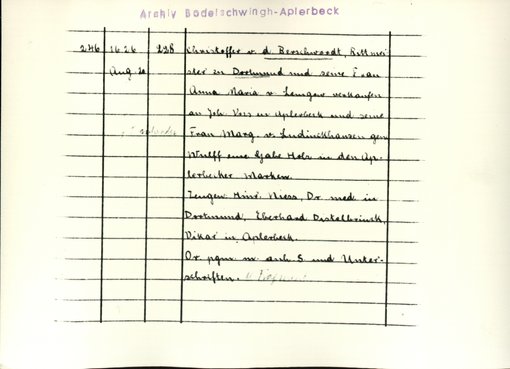 Archiv Bodelschwingh-Aplerbeck
246 1626 228 Christoffer v. d. Berschwordt, Rittmei-
Aug. 20 ster in Dortmund und seine Frau
Anna Maria v. Lemgow verkaufen
an Joh. Voss in Aplerbeck und seine
Frau Marg. v. Ludinckhausen gen.
Wulff eine Gabe Holz in den Ap-
lerbecker Marken.
Zeugen Hinr. Niess, Dr. med. in
Dortmund, Eberhard Distelbrinck,
Vikar in Aplerbeck.
Or. pgm. m. anh. S. und Unter-
schriften.